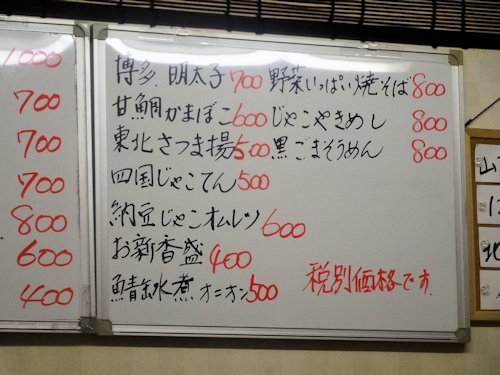 1000
700
700
700
800
600
400
博多 明太子 700
甘鯛かまぼこ 600
東北さつま揚 500
四国じゃこてん 500
納豆じゃこオムレツ 600
お新香盛 400
鯖缶水煮 オニオン 500
野菜いっぱい焼そば 800
じゃこやきめし 800
黒ごまそうめん 800
税別価格です。
山
に
北